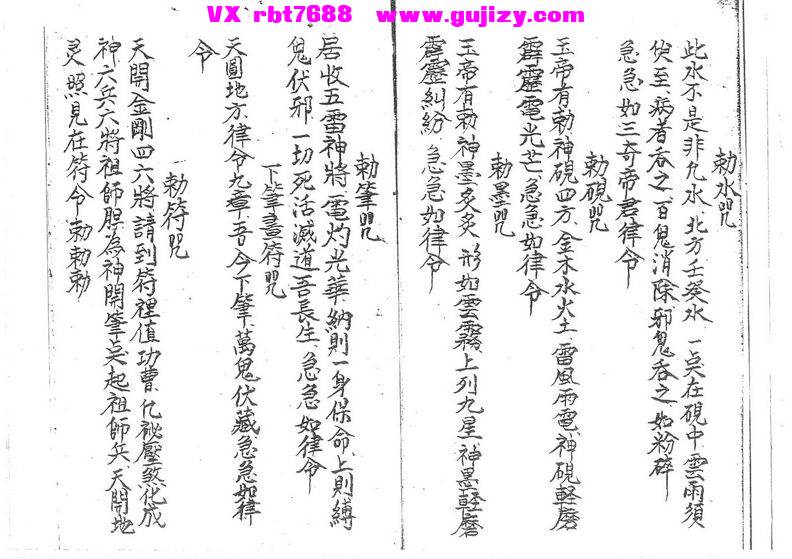 VX rbt7688 www.gujizy.com
勅水咒
此水不是非凢水、北方壬癸水、一点在硯中雲雨須
臾至、病者吞之、百鬼消除邪鬼吞之、如粉碎
急急如三奇帝君律令
勅硯咒
玉帝有勅神硯四方、金木水火土、雷風雨電、神硯軽磨
霹靂電光芒、急急如律令
勅墨咒
玉帝有勅神墨炙炙、形如雲霧、上列九星、神墨軽磨
霹靂糾紛、急急如律令
勅筆咒
居收五雷神將、電灼光華、納則一身保命、上則縛
鬼伏邪、一切死活滅道吾長生、急急如律令
下筆畫符咒
天圓地方、律令九章、吾今下筆、萬鬼伏藏、急急如律
令
勅符咒
天開金剛四六將請到符裡值功曹、化祕壓煞化成
神六兵六將祖師照為神開筆点起祖師兵、天開地
灵照見在符令勅勅勅